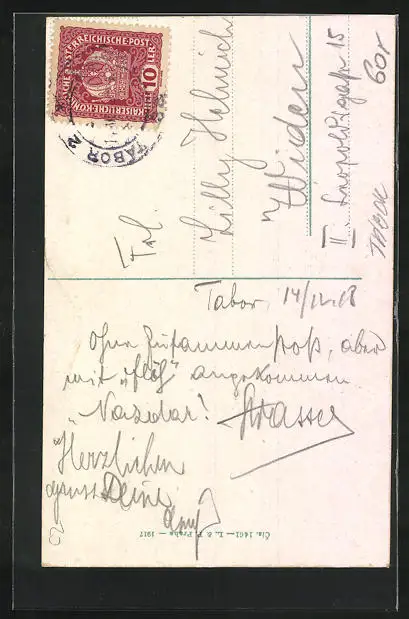 KAISERLICHE KÖNIGLICHE ÖSTERREICHISCHE POST
10 HELLER
TABOR 2
Frl.
Lilly Helmich
Wieden
II Leopoldsgasse 15
Tabor, 14/IV.18
Ohne Zusammenstoß, aber
mit "Flöh" angekommen
"Nazdar! Strasser
Herzlichen
gruss Deine
Čís. 1461 — L. & P. Praha — 1917